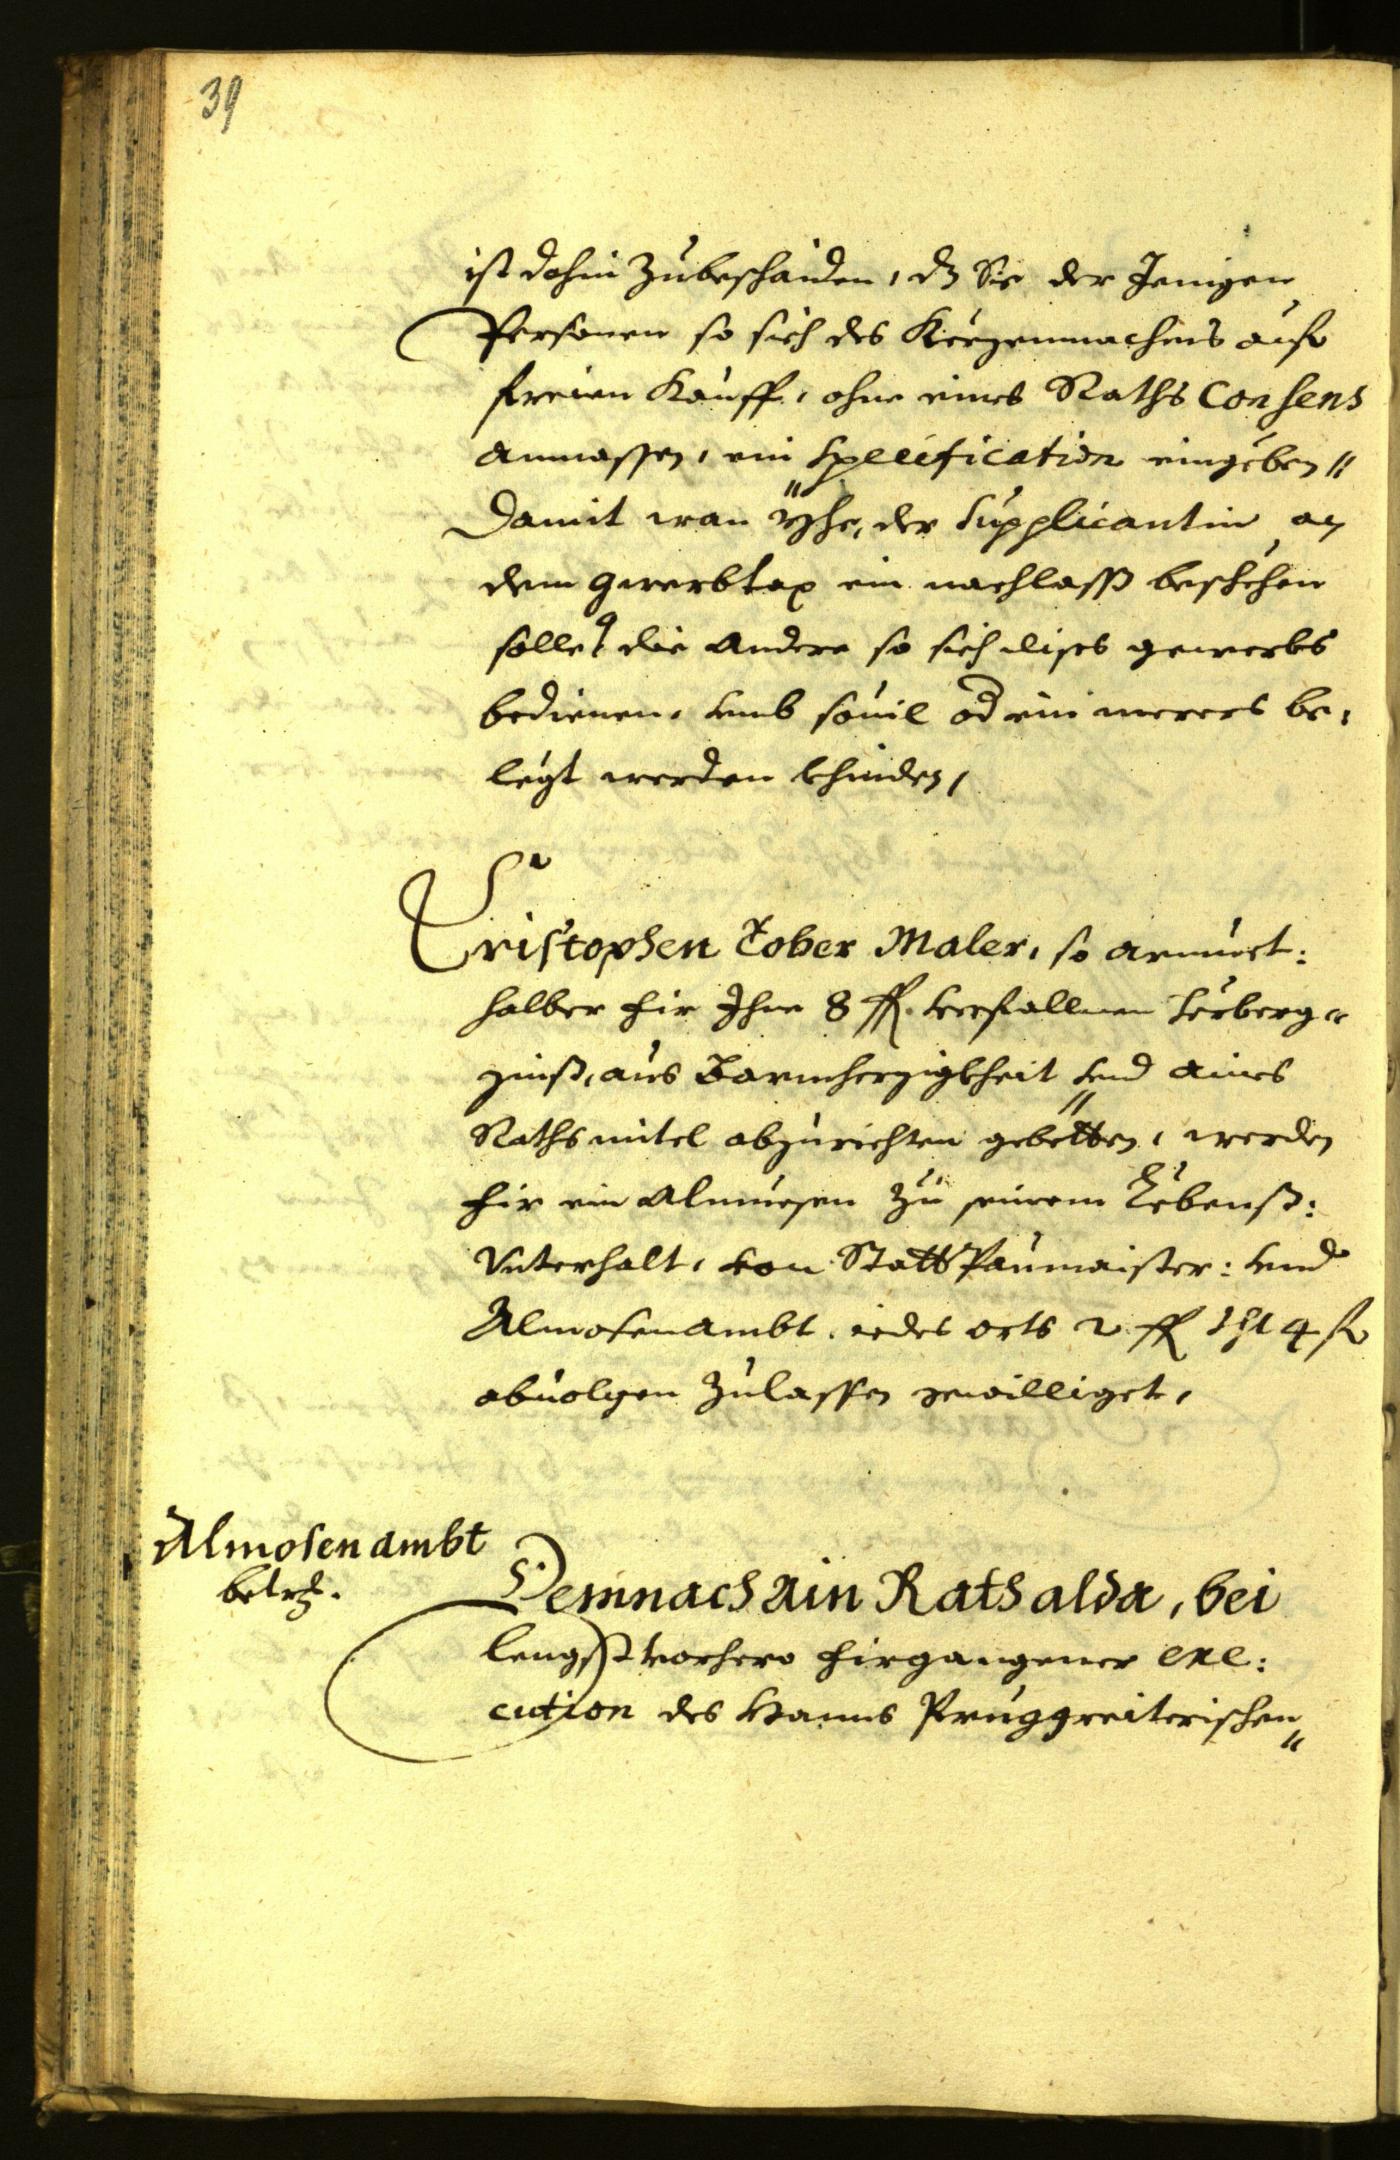 39
ist dahin zubeschaiden, dz Sie der Jenigen
Persohnen so sich des Kerzenmachens aufs
freien Kauff, ohne eines Raths Consens
anmassen, ein Specification eingeben
Damit wan Ihr, der Supplicantin an
dem gwerbtax ein nachlass beschehen
solle die andere so sich dises gewerbs
bedienen, umb souil od ein merers be,
legt werden khinden,
Cristophen Tober Maler, so armuet:
halber fir Ihne 8 fl. verfallnen Herberg
zinß, aus Barmherzigkheit und aines
Raths mitel abzurichten gebetten, werden
fir ein Almuesen zu seinem Lebenß:
Unterhalt, von Statt Paumaister: und
Almosenambt, iedes orts 2 fl
abuolgen zulassen gewilliget,
Almosenambt
betr.
Demnach ain Rath alda, bei
lengst vorhero firgangener exe:
cution des Hanns Pruggreiterischen